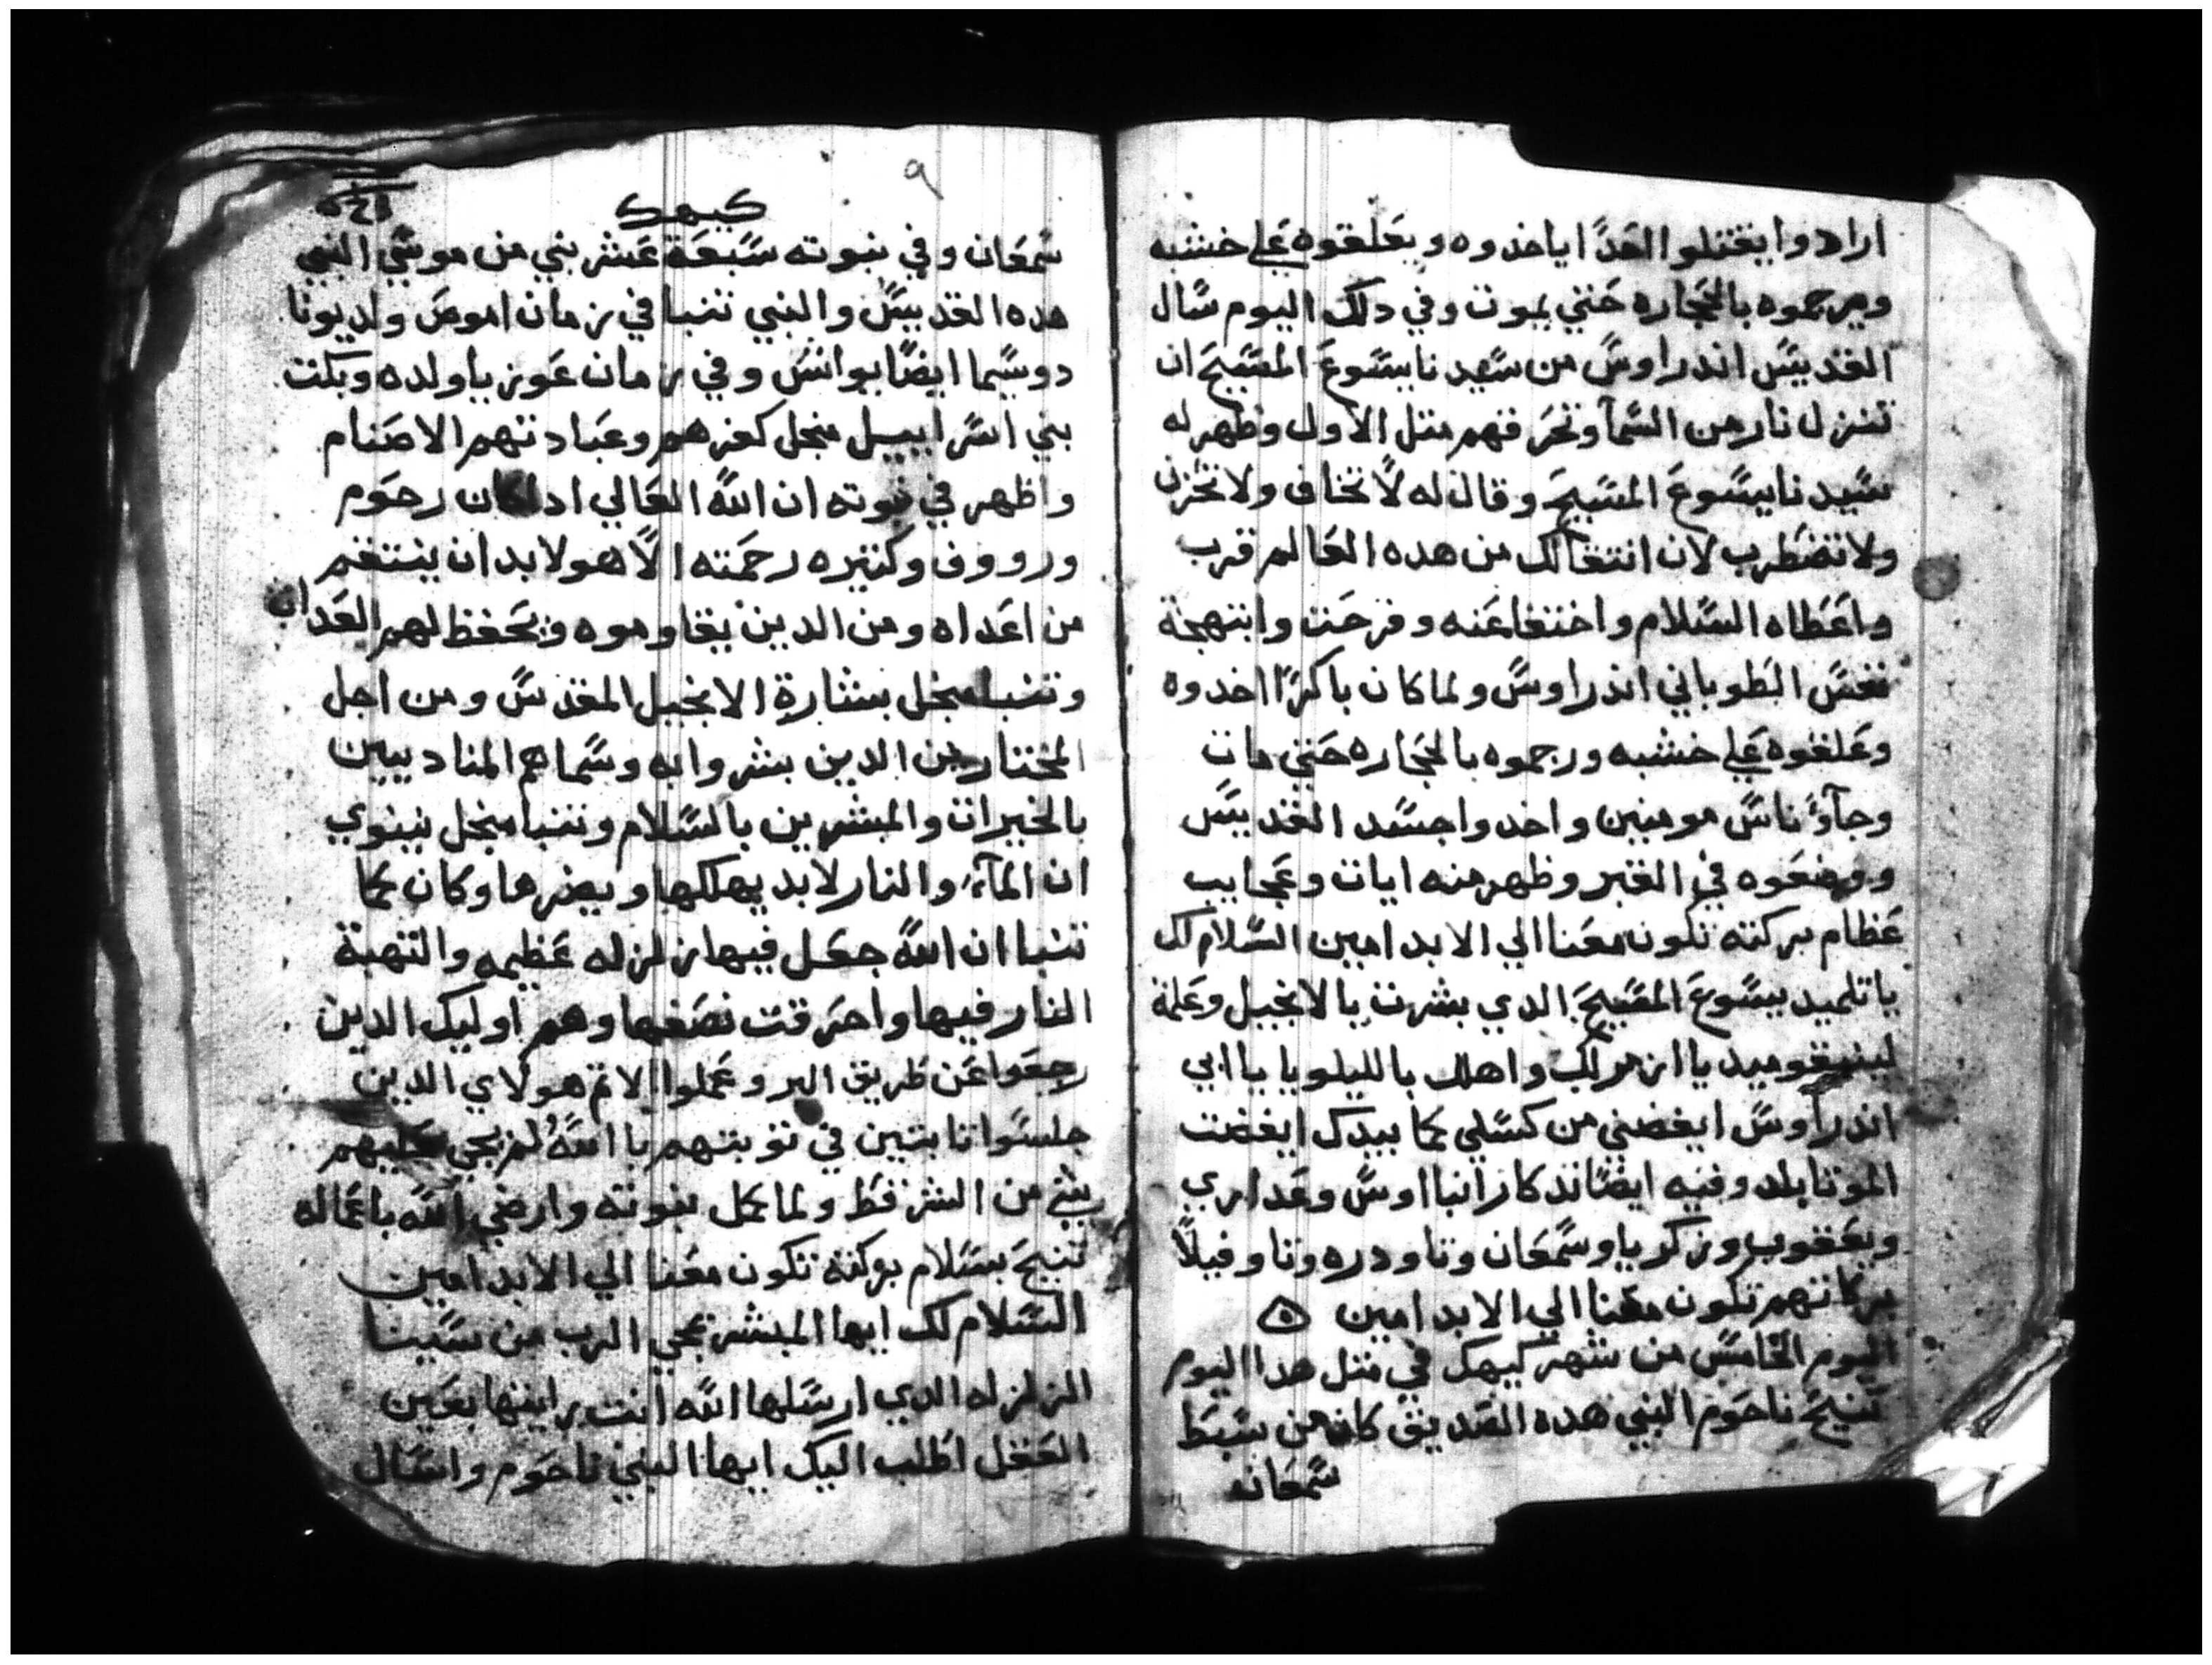 ارادوا يقتلو الغدًا ياخدوه ويعلقوه علي خشبه
ويرجموه بالحجاره حتي يموت وفي دلك اليوم سال
القديس اندراوس من سيدنا يسوع المسيح ان
تنزل نار من السمآ وتحرقهم متل الاول وظهر له
سيدنا يسوع المسيح وقال له لا تخاف ولا تحزن
ولا تضطرب لان انتقالك من هده العالم قرب
واعطاه السلام واختفا عنه وفرحت وابتهجة
نفس الطوباني اندراوس ولما كان باكرًا اخدوه
وعلقوه علي خشبه ورجموه بالحجاره حتي مات
وجآؤ ناس مومنين واخدوا جسد القديس
ووضعوه في القبر وظهر منه ايات وعجايب
عظام بركته تكون معنا الي الابد امين السلام لك
ياتلميد يسوع المسيح الدي بشرت بالانجيل وعلمة
واهلل بالليلويا يا ابي
اندرآوس ايغضني من كسلي كما بيدك ايغضت
الموتا بلد وفيه ايضًا تدكار انبا اوس وعداري
ويعقوب وزكريا وسمعان وتاودره وتاوفيلا
بركاتهم تكون معنا الي الابد امين
اليوم الخامس من شهر كيهك في متل هدا اليوم
تنيح ناحوم النبي هده الصديق كان من سبط
سمعان
٩
كيهك
سمعان وفي نبوته سبعة عشر نبي من موسي النبي
هده القديس والنبي تنبا في زمان اموص ولد يونا
دوسما ايضًا يوانس وفي زمان عوزيا ولده وبكت
بني اسراييل منجل كفرهم وعبادتهم الاصنام
واظهر في نبوته ان الله العالي اداكان رحوم
ورووف وكتيره رحمته الا هو لابد ان ينتقم
من اعداه ومن الدين يقاوموه ويحفظ لهم العداب
وتنبا منجل بشارة الانجيل المقدس ومن اجل
المختارين الدين بشروا به وسماهم المناديين
بالخيرات والمبشرين بالسلام وتنبا منجل نينوي
ان المآء والنار لابد يهلكها ويضرها وكان كما
تنبا ان الله جعل فيها زلزله عظيمه والتهبة
النار فيها واحترقت نصفها وهم اوليك الدين
رجعوا عن طريق البر وعملوا الاتم هولاي الدين
جلسوا تابتين في توبتهم باالله لم يجي عليهم
شي من الشر فقط ولما كمل نبوته وارضي الله باعماله
تنيح بسلام بركته تكون معنا الي الابد امين
السلام لك ايها المبشر بمجي الرب من سينا
الزلزله الدي ارسلها الله انت رايتها بعين
العقل اطلب اليك ايها النبي ناحوم واسال